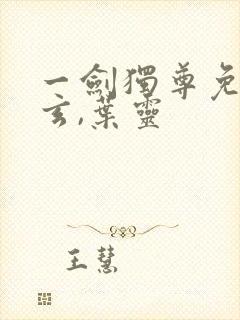 一劍獨尊免
玄,葉靈
王慧